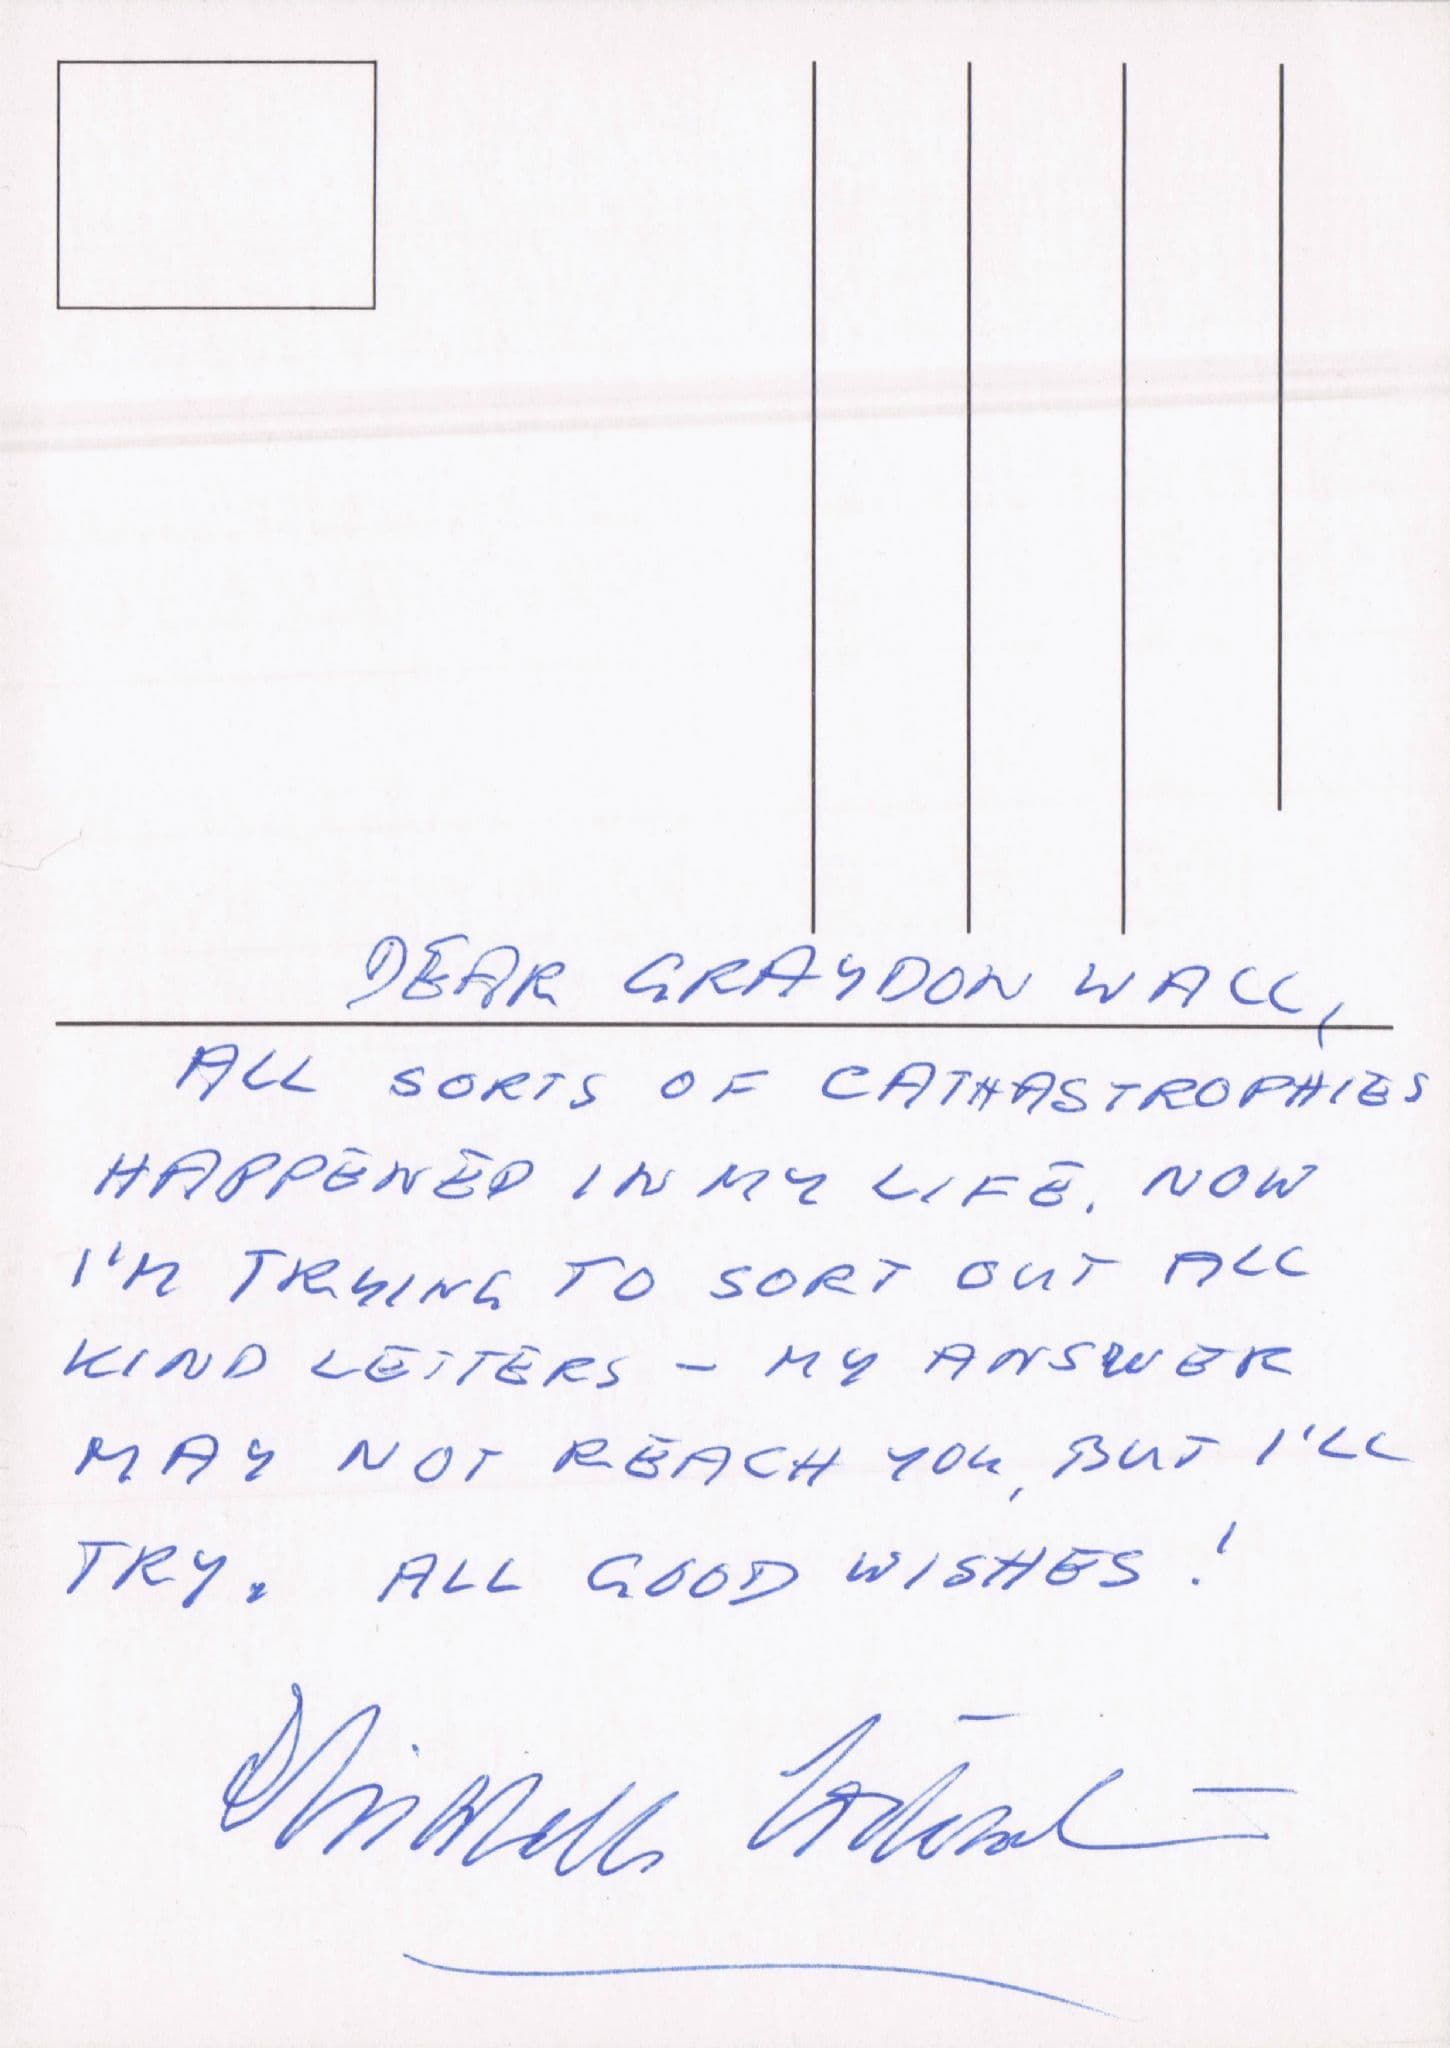 DEAR GRAYDON WALL,
ALL SORTS OF CATHASTROPHIES
HAPPENED IN MY LIFE. NOW
I'M TRYING TO SORT OUT ALL
KIND LETTERS – MY ANSWER
MAY NOT REACH YOU, BUT I'LL
TRY. ALL GOOD WISHES!